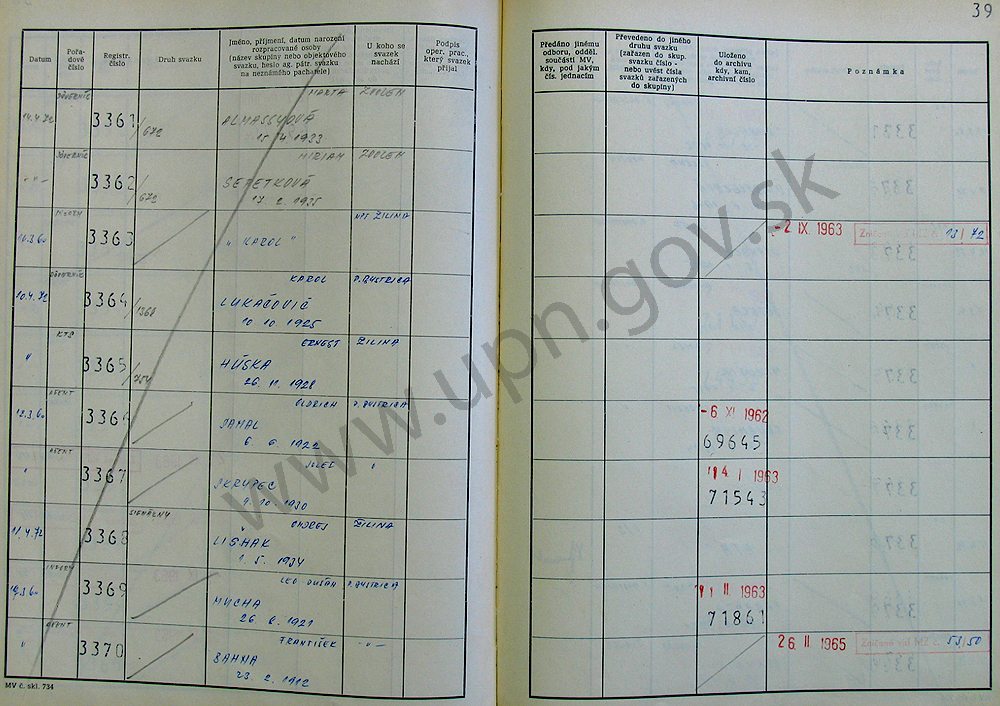 39
Datum
Pořa-
dové
číslo
Registr.
číslo
Druh svazku
Jméno, příjmení, datum narození
rozpracované osoby
(název skupiny nebo objektového
svazku, heslo ag. pátr. svazku
na neznámého pachatele)
U koho se
svazek
nachází
Podpis
oper. prac.,
který svazek
přijal
Předáno jinému
odboru, odděl.
součásti MV,
kdy, pod jakým
čís. jednacím
Převedeno do jiného
druhu svazku
(zařazen do skup.
svazku číslo -
nebo uvést čísla
svazků zařazených
do skupiny)
Uloženo
do archivu
kdy, kam,
archivní číslo
Poznámka
DŮVERNÍK MARTA ZVOLEN
14.4.72 3361 /672 ALMASSYOVÁ
1933
DŮVERNÍK MIRIAM ZVOLEN
-"- 3362 /672
17. 2. 1935
ŽILINA
3363 "KAROL" - 2 IX. 1963 13/72
DŮVERNÍK KAROL B.BYSTRICA
10.4.72 3364 /1360 LUKAČOVIČ
10. 10. 1925
KTS ERNEST ŽILINA
" 3365 HÚSKA
26. 11. 1928
AGENT OLDRICH B.BYSTRICA
12.3.60 3366 - 6 XI 1962
6. 6. 1922 69645
AGENT JOZEF "
" 3367 14. I 1963
9. 10. 1930 71543
SIGNÁLNY ONDREJ ŽILINA
11.4.72 3368 LIŠHAK
1. 5. 1934
INFORM LEO DUŠAN B.BYSTRICA
3369 MUCHA 11 II. 1963
26. 2. 1921 71861
AGENT FRANTIŠEK -"-
" 3370 26. II 1965 53/50
23. 2. 1912
MV č. skl. 734
www.upn.gov.sk